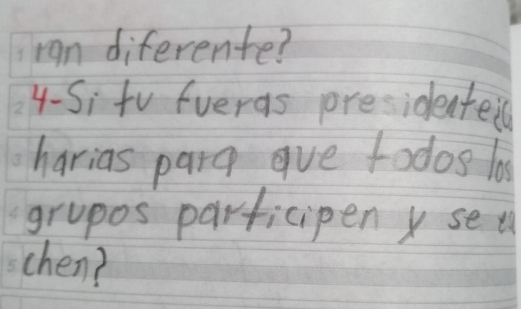 ran diferente?
4-Si tu fueras presidente¿
harias para que todos los
grupos participen y se
chen?